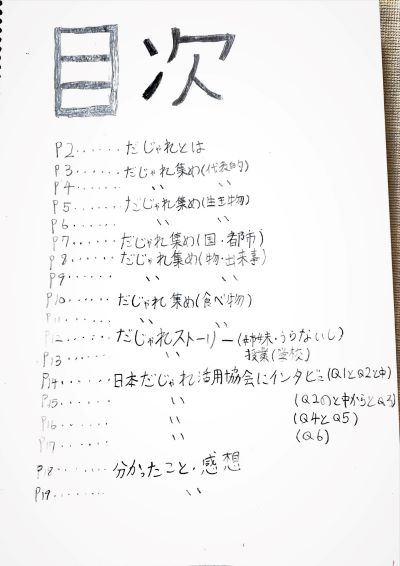 目次
P2......だじゃれとは
P3......だじゃれ集め(代表的)
P4...... 〃 〃
P5......だじゃれ集め(生き物)
P6...... 〃 〃
P7......だじゃれ集め(国・都市)
P8......だじゃれ集め(物・出来事)
P9...... 〃 〃
P10.....だじゃれ集め(食べ物)
P11..... 〃 〃
P12......だじゃれストーリー(姉妹・うらないし)
P13...... 〃 授業(学校)
P14......日本だじゃれ活用協会にインタビュ(Q1とQ2と中)
P15...... 〃 (Q2のと中からとQ3)
P16...... 〃 (Q4とQ5)
P17...... 〃 (Q6)
P18......分かったこと・感想
P19....... 〃